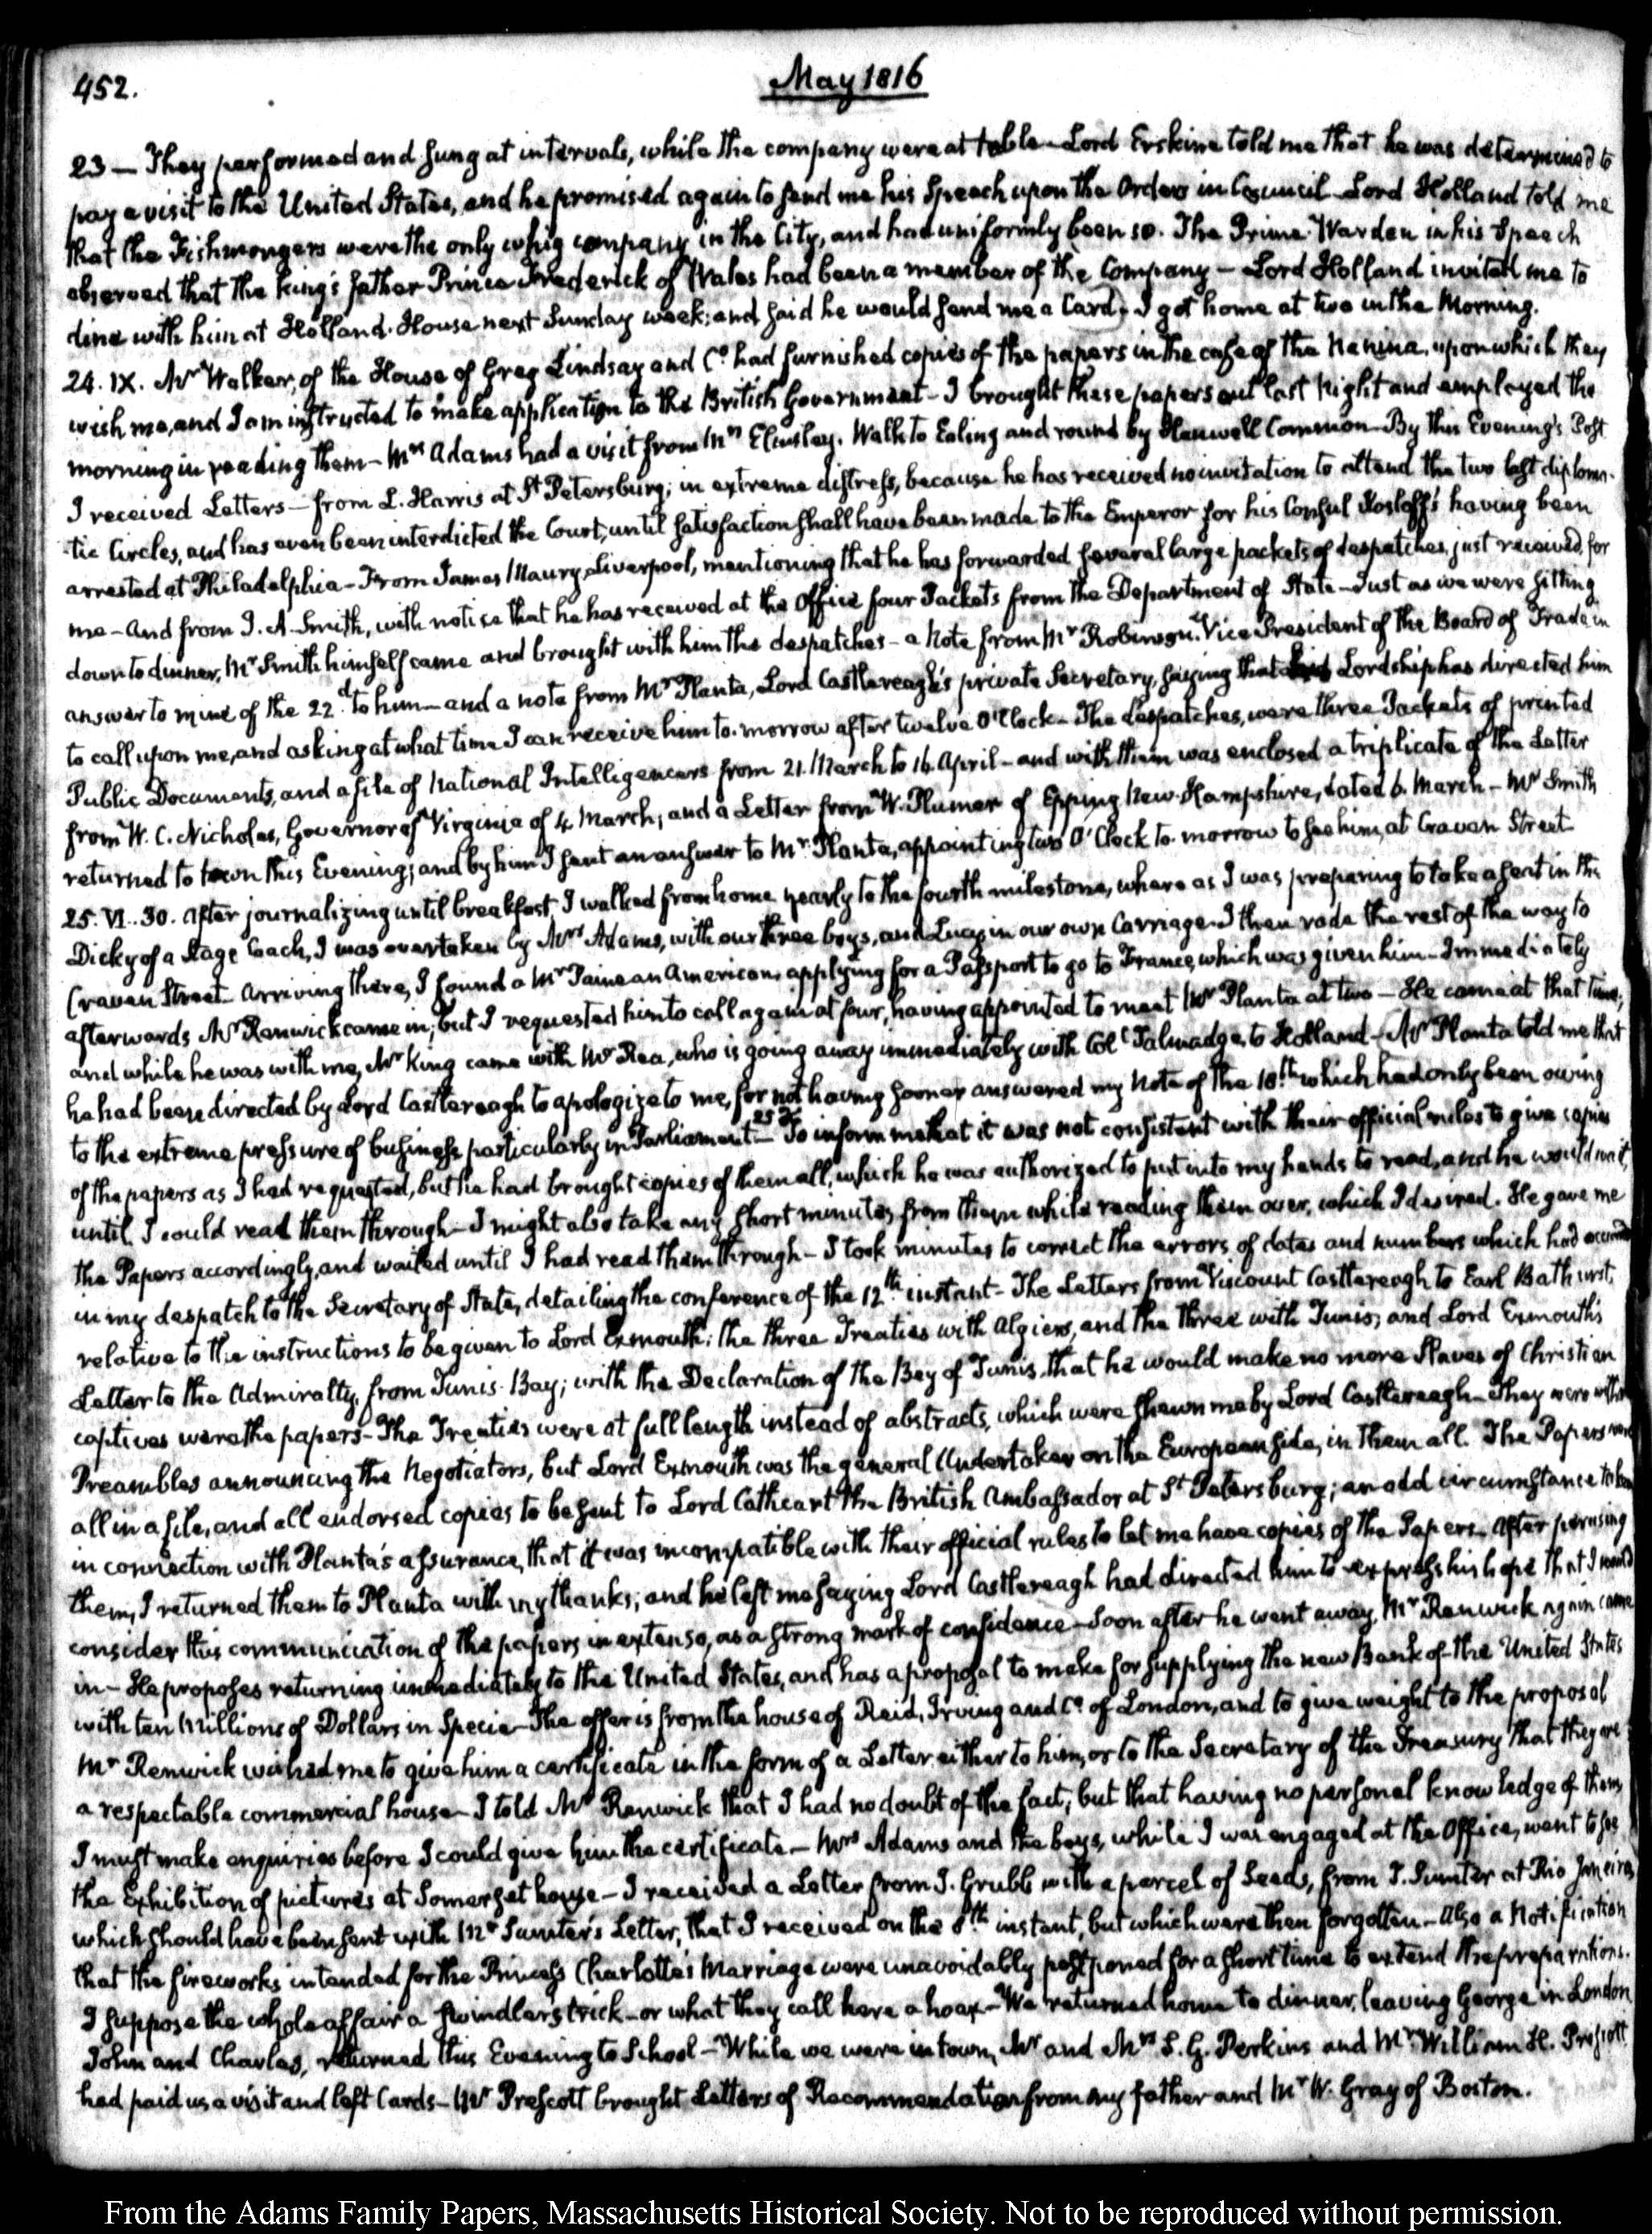 452.
May 1816
23 — They performed and sung at intervals, while the company were at table – Lord Erskine told me that he was determined to
pay a visit to the United States, and he promised again to send me his Speech upon the Orders in Council – Lord Holland told me
that the Fishmongers were the only whig company in the City, and had uniformly been so. The Prime Warden in his Speech
observed that the King's father Prince Frederick of Wales had been a member of the Company – Lord Holland invited me to
dine with him at Holland-House next Sunday week; and said he would send me a Card. I got home at two in the Morning.
24. IX. Mr Walker, of the House of Greg Lindsay and Co. had furnished copies of the papers in the case of the Nanina, upon which they
wish me, and I am instructed to make application to the British Government – I brought these papers out last Night and employed the
morning in reading them – Mrs Adams had a visit from Mrs Elmsley. Walk to Ealing and round by Hanwell Common – By this Evening's Post
I received Letters – from L. Harris at St Petersburg; in extreme distress, because he has received no invitation to attend the two last diploma-
tic Circles, and has even been interdicted the Court, until satisfaction shall have been made to the Emperor for his Consul Kosloff's having been
arrested at Philadelphia – From James Maury, Liverpool, mentioning that he has forwarded several large packets of despatches, just received, for
me – And from J. A. Smith, with notice that he has received at the Office four Packets from the Department of State – Just as we were sitting
down to dinner, Mr Smith himself came and brought with him the despatches – a Note from Mr Robinson, Vice President of the Board of Trade in
answer to mine of the 22d. to him – and a note from Mr Planta, Lord Castlereagh's private Secretary, saying that Lordship has directed him
to call upon me, and asking at what time I can receive him to-morrow after twelve O'Clock – The despatches, were three Packets of printed
Public Documents, and a file of National Intelligencers from 21. March to 16. April – and with them was enclosed a triplicate of the Letter
from W. C. Nicholas, Governor of Virginia of 4 March; and a Letter from W. Plumer of Epping New-Hampshire, dated 6. March – Mr Smith
returned to town this Evening; and by him I sent an answer to Mr Planta, appointing two O'Clock to-morrow to see him, at Craven Street
25. VI..30. After journalizing until breakfast, I walked from home nearly to the fourth milestone, where as I was preparing to take a seat in the
Dicky of a Stage Coach, I was overtaken by Mrs Adams, with our three boys, and Lucy in our own Carriage. I then rode the rest of the way to
Craven Street – Arriving there, I found a Mr Paine an American, applying for a Passport to go to France, which was given him – Immediately
afterwards Mr Renwick came in; but I requested him to call again at four, having appointed to meet Mr Planta at two – He came at that time;
and while he was with me, Mr King came with Mr Rea, who is going away immediately with Col Talmadge, to Holland – Mr Planta told me that
he had been directed by Lord Castlereagh to apologize to me, for not having sooner answered my Note of the 18th. which had only been owing
to the extreme pressure of business, particularly in Parliament – To inform me that it was not consistent with their official rules to give copies
of the papers as I had requested, but he had brought copies of them all, which he was authorized to put into my hands to read, and he would wait,
until I could read them through – I might also take any short minutes from them while reading them over, which I desired. He gave me
the Papers accordingly, and waited until I had read them through – I took minutes to correct the errors of dates and numbers which had occurred
in my despatch to the Secretary of State, detailing the conference of the 12th instant – The Letters from Viscount Castlereagh to Earl Bathurst,
relative to the instructions to be given to Lord Exmouth; the three Treaties with Algiers, and the three with Tunis, and Lord Exmouth's
Letter to the Admiralty, from Tunis-Bay; with the Declaration of the Bey of Tunis, that he would make no more Slaves of Christian
captives were the papers – The Treaties were at full length instead of abstracts, which were shewn me by Lord Castlereagh – They were without
Preambles announcing the Negotiators, but Lord Exmouth was the general Undertaker on the European side, in them all. The Papers were
all in a file, and all endorsed copies to be sent to Lord Cathcart the British Ambassador at St Petersburg; an odd circumstance taken
in connection with Planta's assurance, that it was incompatible with their official rules to let me have copies of the Papers – After perusing
them, I returned them to Planta with my thanks; and he left me saying Lord Castlereagh had directed him to express his hope that I would
consider this communication of the papers in extenso, as a strong mark of confidence – Soon after he went away, Mr Renwick again came
in – He proposes returning immediately to the United States, and has a proposal to make for supplying the new Bank of the United States
with ten Millions of Dollars in Specie – The offer is from the house of Reid, Irving and Co. of London, and to give weight to the proposal
Mr Renwick wished me to give him a certificate in the form of a Letter either to him, or to the Secretary of the Treasury that they are
a respectable commercial house – I told Mr Renwick that I had no doubt of the fact; but that having no personal knowledge of them,
I must make enquiries before I could give him the certificate – Mrs Adams and the boys, while I was engaged at the Office, went to see
the Exhibition of pictures at Somerset house – I received a Letter from J. Grubb with a parcel of Seeds, from T. Sumter at Rio Janeiro,
which should have been sent with Mr Sumter's Letter, that I received on the 8th instant, but which were then forgotten – Also a Notification
that the fireworks intended for the Princess Charlotte's Marriage were unavoidably postponed for a short time to extend the preparations.
I suppose the whole affair a swindlers trick – or what they call here a hoax – We returned home to dinner, leaving George in London
John and Charles, returned this Evening to School – While we were in town, Mr and Mrs S. G. Perkins and Mr William H. Prescott
had paid us a visit and left Cards – Mr Prescott brought Letters of Recommendation from my father and Mr W. Gray of Boston.
From the Adams Family Papers, Massachusetts Historical Society. Not to be reproduced without permission.